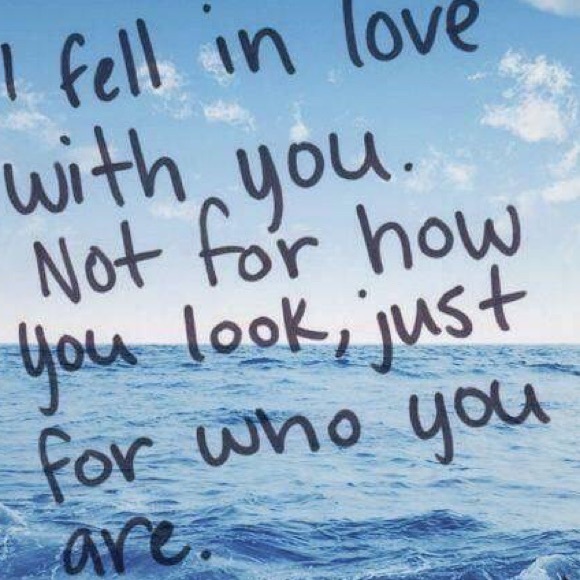 I fell in love
with you.
Not for how
you look, just
for who you
are.